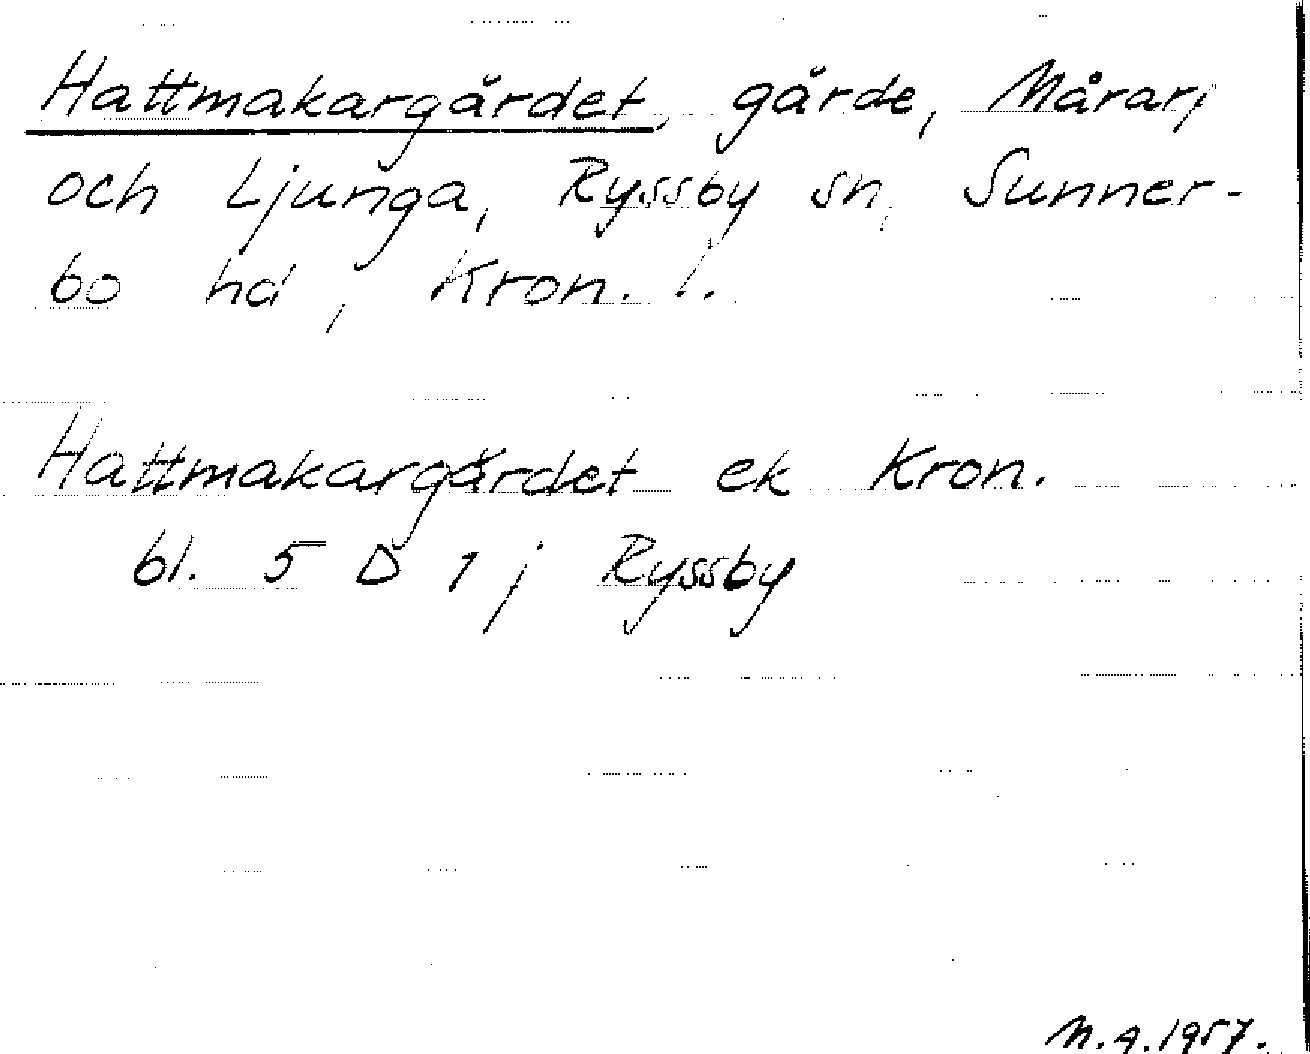 Hattmakargärdet, gärde, Mårarp
och Ljunga, Ryssby sn, Sunner-
bo hd, Kron. l.
Hattmakargärdet ek Kron.
bl. 5 D 1 j Ryssby
M.A. 1957.